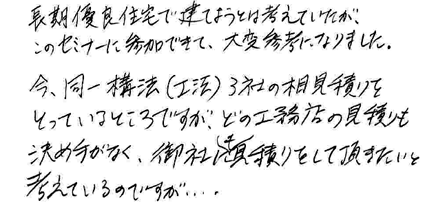 長期優良住宅で建てようとは考えていたが、
このセミナーに参加できて、大変参考になりました。
今、同一構法(工法)3社の相見積りを
とっているところですが、どの工務店の見積りも
決め手がなく、御社にも見積りをして頂きたいと
考えているのですが・・・。